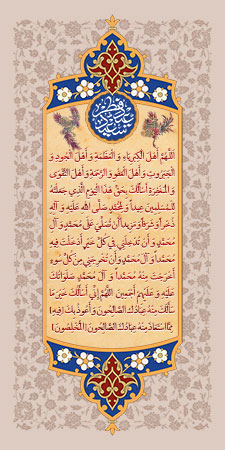 عید سعید فطر
اَللّهُمَّ اَهْلَ الْكِبْرِیاءِ وَ الْعَظَمَةِ وَ اَهْلَ الْجُودِ وَ
الْجَبَرُوتِ وَ اَهْلَ الْعَفْوِ وَ الرَّحْمَةِ وَ اَهْلَ التَّقْوى
وَ الْمَغْفِرَةِ اَسْاَلُكَ بِحَقِّ هذَا الْیَومِ الَّذي جَعَلْتَهُ
لِلْمُسْلِمينَ عيداً وَ لِمُحَمَّدٍ صَلَّى اللهُ عَلَیْهِ وَ آلِهِ
ذُخْراً وَ شَرَفاً وَ مَزيداً اَنْ تُصَلِّيَ عَلى مُحَمَّدٍ وَ آلِ
مُحَمَّدٍ وَ اَنْ تُدْخِلَني في كُلِّ خَیْرٍ اَدْخَلْتَ فيهِ
مُحَمَّداً وَ آلَ مُحَمَّدٍ وَ اَنْ تُخْرِجَني مِنْ كُلِّ سُوءٍ
اَخْرَجْتَ مِنْهُ مُحَمَّداً وَ آلَ مُحَمَّدٍ صَلَواتُكَ
عَلَیْهِ وَ عَلَیْهِمْ اَجْمَعينَ اَللّهُمَّ اِنّي اَسْاَلُكَ خَیْرَ ما
سَاَلَكَ مِنْهُ عِبادُكَ الصّالِحُونَ وَ اَعُوذُ بِكَ [فيهِ]
مِمَّا اسْتَعاذَ مِنْهُ عِبادُكَ الصّالِحُونَ [الْمُخْلِصُونَ]